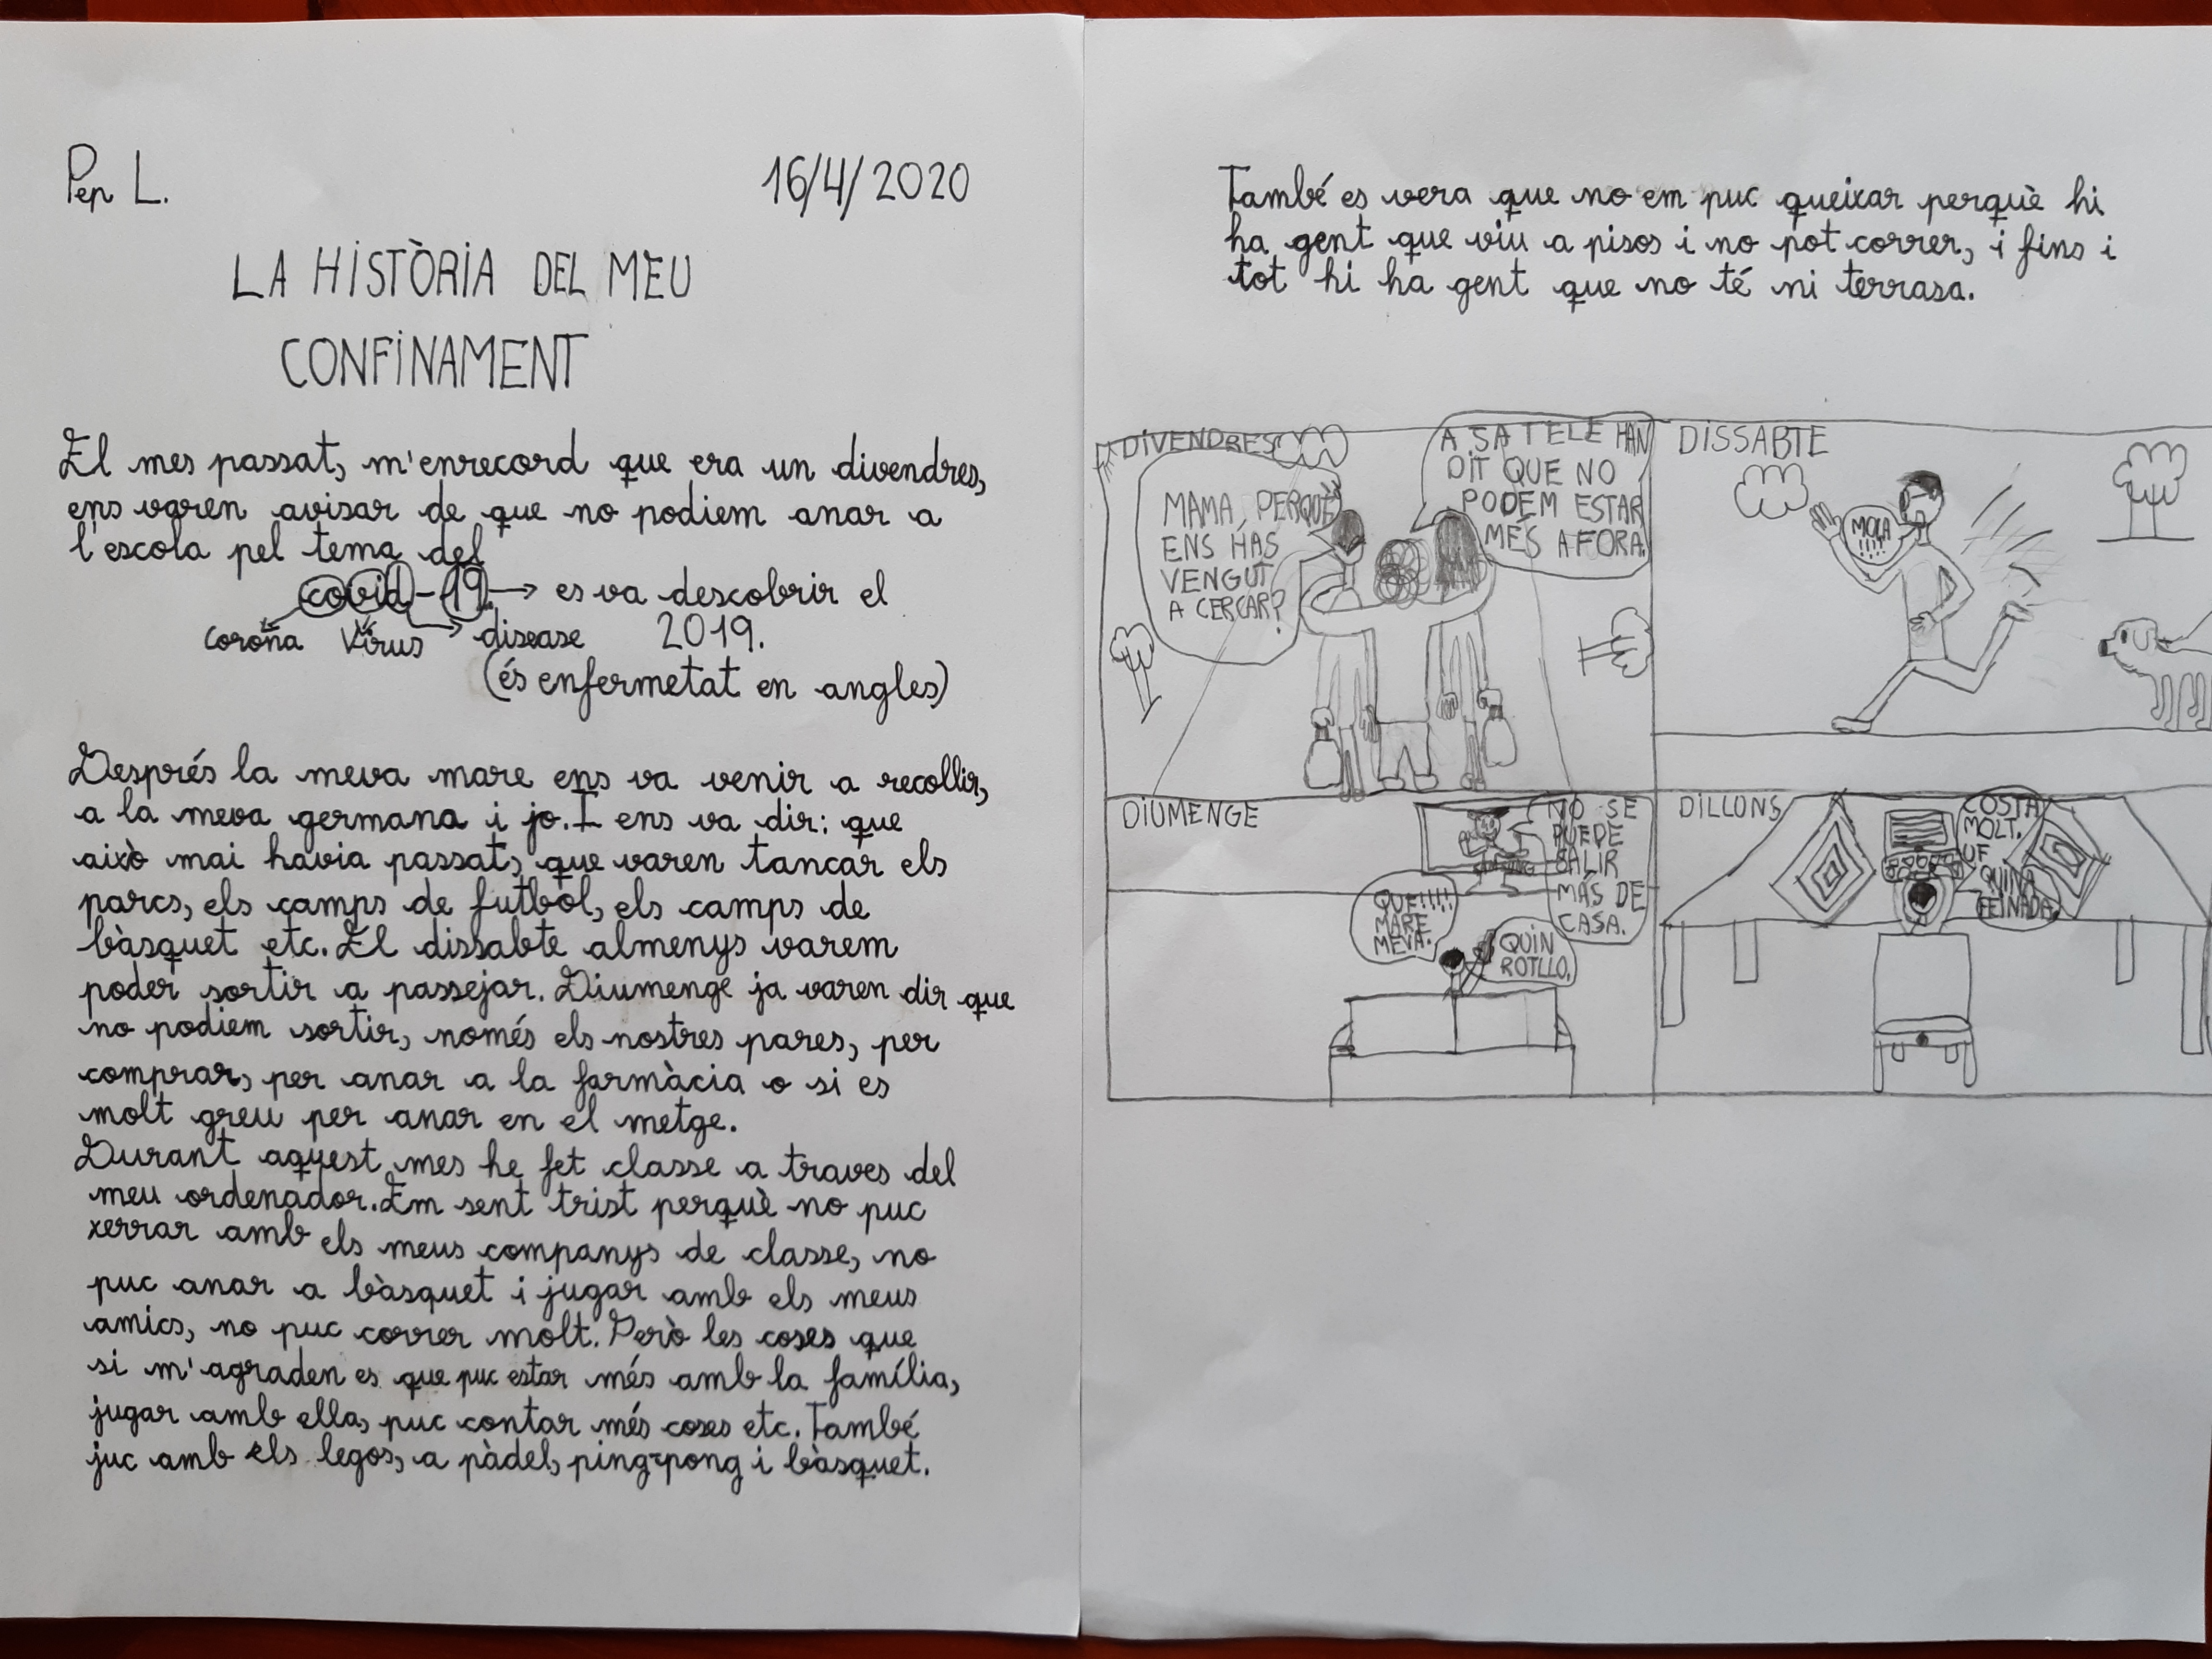 Pep L.
16/4/2020
LA HISTÒRIA DEL MEU
CONFINAMENT
El mes passat, m'enrecord que era un divendres,
ens varen avisar de que no podiem anar a
l'escola pel tema del
covid-19. → es va descobrir el
corona virus disease 2019.
(és enfermetat en angles)
Després la meva mare ens va venir a recollir,
a la meva germana i jo. I ens va dir: que
això mai havia passat, que varen tancar els
parcs, els camps de futbol, els camps de
bàsquet etc. El dissabte almenys varem
poder sortir a passejar. Diumenge ja varen dir que
no podiem sortir, només els nostres pares, per
comprar, per anar a la farmàcia o si es
molt greu per anar en el metge.
Durant aquest mes he fet classe a traves del
meu ordenador. Em sent trist perquè no puc
xerrar amb els meus companys de classe, no
puc anar a bàsquet i jugar amb els meus
amics, no puc correr molt. Però les coses que
si m'agraden es que puc estar més amb la família,
jugar amb ella, puc contar més coses etc. També
juc amb els legos, a pàdel, ping-pong i bàsquet.
També es vera que no em puc queixar perquè hi
ha gent que viu a pisos i no pot correr, i fins i
tot hi ha gent que no té ni terrasa.
DIVENDRES
MAMA PERQUÈ
ENS HÁS
VENGUT
A CERCAR?
A SA TELE HAN
DIT QUE NO
PODEM ESTAR
MÉS AFORA.
DISSABTE
MOLA
!!!!
DIUMENGE
NO SE
PUEDE
SALIR
MÁS DE
CASA.
QUE!!!!
MARE
MEVA.
QUIN
ROTLLO.
DILLUNS
COSTA
MOLT.
UF
QUINA
FEINADA.